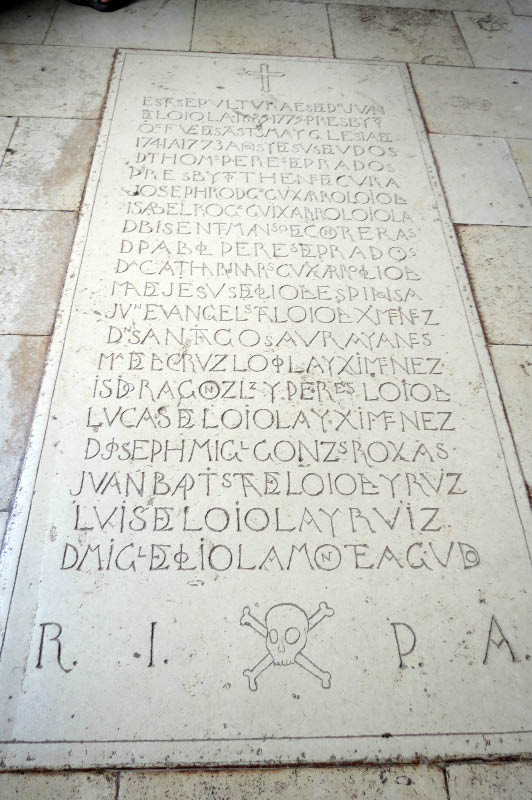 ESTA SEPULTURA ES DE Dn JUAN
DE LOIOLA PRESBYo
Qe FUE DE ASTA Y GLESIA DE
1741 A 1773 AMOS Y DESUS DEUDOS
D THOMs PERES DE PRADOS
PRESBYTo THENTE CURA
JOSEPH RODGs GUIXARRO LOIOLA
ISABEL RODGs GUIXARRO LOIOLA
D BISENT MANso DE CONRERAS
D PABLO PERES DE PRADOS
Da CATHARINA Rs GUIXARRO LOIOLA
Ma DE JESUS DE LOIOLA ESPINOSA
JUn EVANGELSTA LOIOLA XIMENEZ
Dn SANTIAGO SAURA YANES
Ma DE LA CRUZ LOIOLA Y XIMENEZ
ISIDRA GONZLZ Y PERES LOIOLA
LUCAS DE LOIOLA Y XIMENEZ
D JOSEPH MIGL GONZs ROXAS
JUAN BAPTSTA DE LOIOLA Y RUIZ
LUIS DE LOIOLA Y RUIZ
D MIGL DE LOIOLA MONTEAGUDO
R. I. P. A.